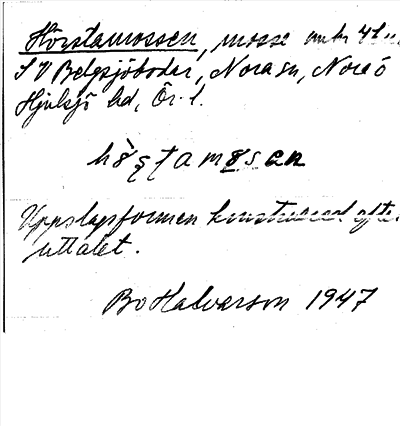 Hörstamossen, mosse omkr 4 km
SV Belgsjöbodar, Nora sn, Nora ö
Hjulsjö hd, Ör. l.
hö̀ʂʈamøsən
Uppslagsformen konstruerad efter
uttalet.
Bo Halvarson 1947